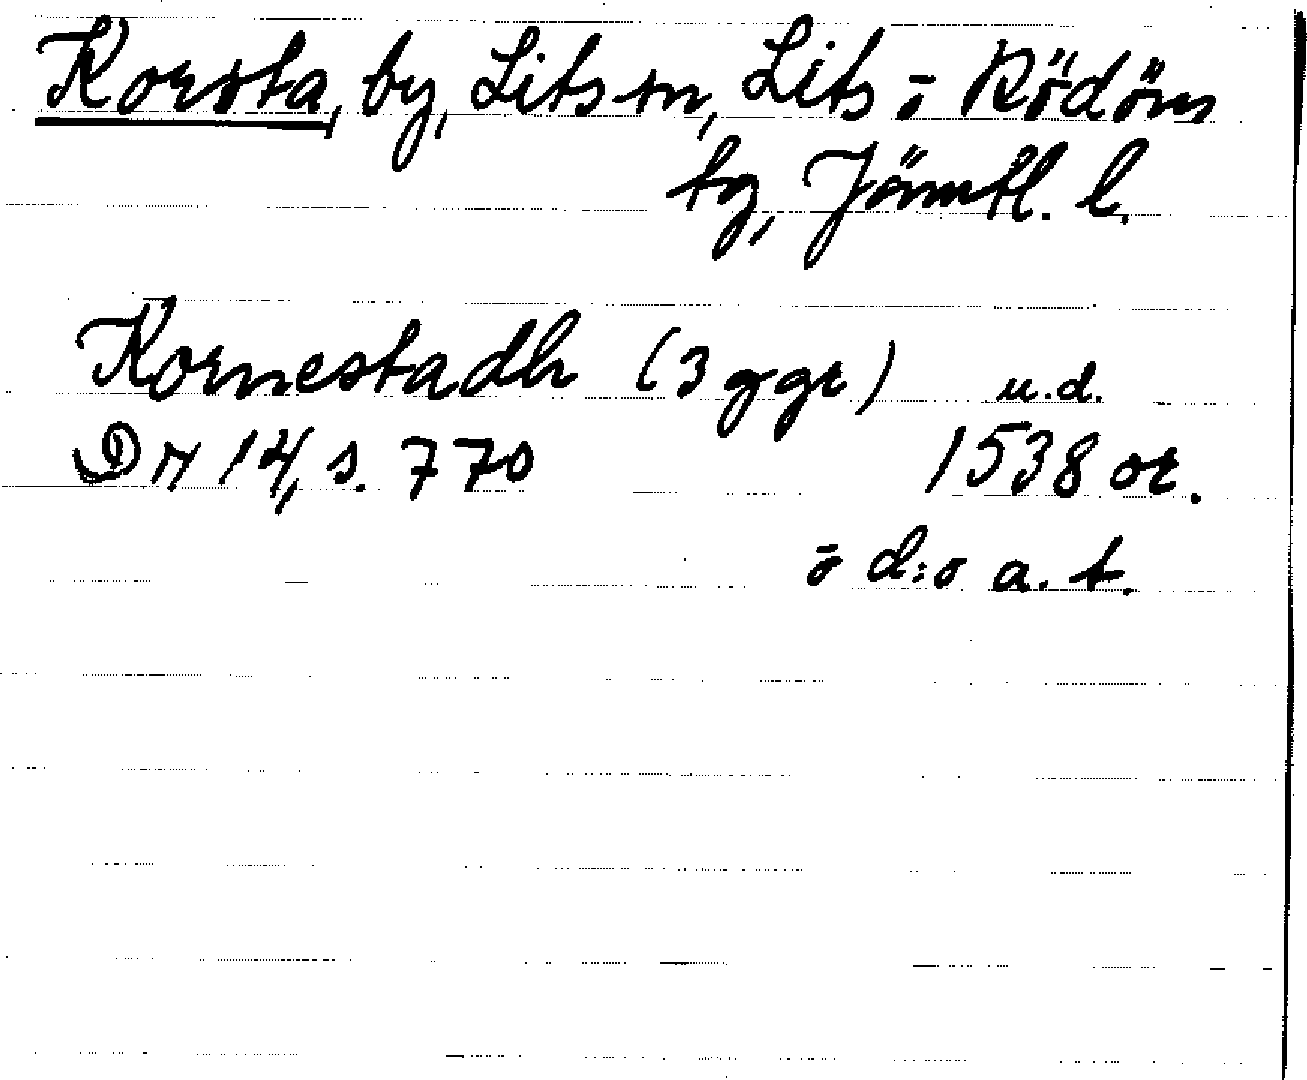 Korsta, by, Lits sn, Lits o̅ Rödöns
tg, Jämtl. l.
Kornestadh (3 ggr) u.d.
DN 14, s. 770 1538 or.
o̅ d:o a. t.